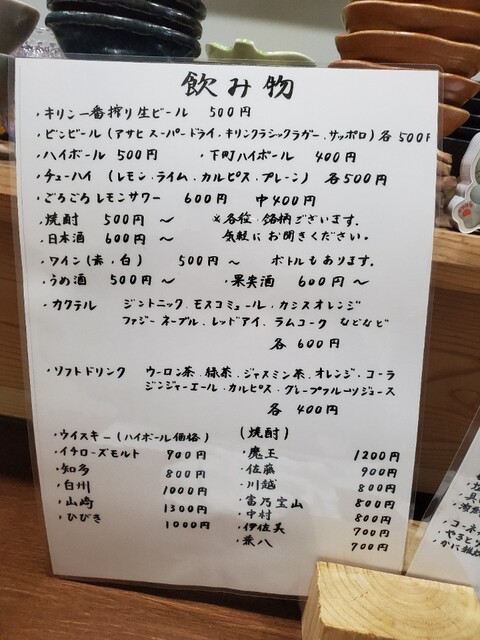 飲み物
・キリン一番搾り生ビール 500円
・ビンビール(アサヒスーパードライ.キリンクラシックラガー.サッポロ)各500F
・ハイボール 500円 ・下町ハイボール 400円
・チューハイ (レモン.ライム.カルピス.プレーン) 各500円
・ごろごろレモンサワー 600円 中400円
・焼酎 500円 〜 ※各位、銘柄ございます.
・日本酒 600円 〜 気軽にお聞きください.
・ワイン(赤.白) 500円 〜 ボトルもあります.
・うめ酒 500円 〜 ・果実酒 600円 〜
・カクテル ジントニック.モスコミュール.カシスオレンジ
ファジーネーブル.レッドアイ.ラムコーク などなど
各 600円
・ソフトドリンク ウーロン茶.緑茶.ジャスミン茶.オレンジ.コーラ
ジンジャーエール.カルピス.グレープフルーツジュース
各 400円
・ウイスキー(ハイボール価格)
・イチローズモルト 900円
・知多 800円
・白州 1000円
・山崎 1300円
・ひびき 1000円
(焼酎)
・魔王 1200円
・佐藤 900円
・川越 800円
・富乃宝山 800円
・中村 800円
・伊佐美 700円
・兼八 700円